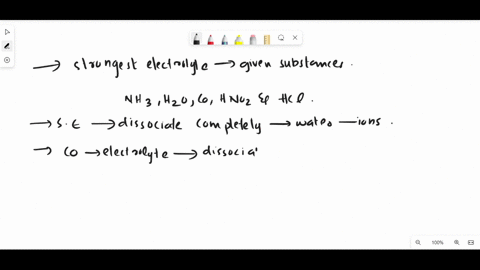 → strongest electrolyte → given substances.
NH3, H2O, CO, HNO2 & HCl.
→ S.E → dissociate completely → water → ions.
→ CO → electrolyte → dissociat
100%